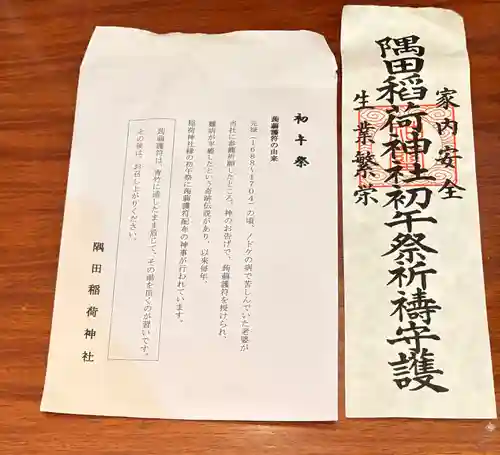 初午祭
蒟蒻護符の由来
元禄(1688~1704)の頃、ノドケの病で苦しんでいた老婆が
当社に参籠祈願したところ、神のお告げで、蒟蒻護符を授けられ、
難病が平癒したという奇跡伝説があり、以来毎年、
稲荷神社縁の初午祭に蒟蒻護符配布の神事が行われています。
蒟蒻護符は、青竹に通したまま煎じて、その湯を頂くのが習いです。
その後は、お召し上がりください。
隅田稲荷神社
家内安全
隅田稲荷神社初午祭祈禱守護
生業繁栄